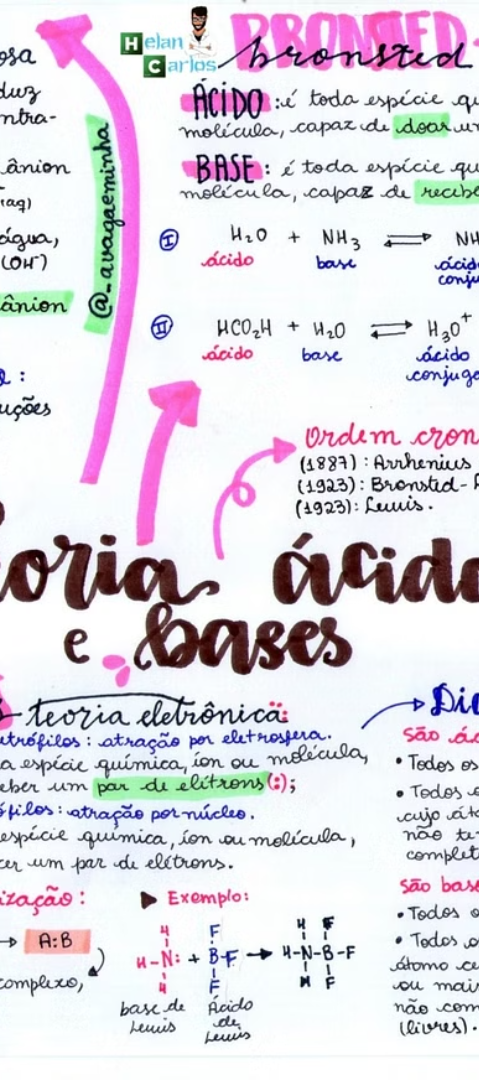 Helan
Carlos
BRONSTED-
bronsted
ÁCIDO : é toda espécie qu
molécula, capaz de doar um
BASE : é toda espécie qu
molécula, capaz de recebe
I H₂O + NH₃ ⇌ NH
ácido base ácid
conju
II HCO₂H + H₂O ⇌ H₃O⁺
ácido base ácido
conjuga
osa
duz
ntra-
ânion
(aq)
água,
(OH⁻)
ânion
:
uções
@_avagaeminha
Ordem cron
(1887) : Arrhenius
(1923) : Bronsted-
(1923) : Lewis.
oria ácido
e bases
teoria eletrônica:
etrófilos : atração por eletrosfera.
a espécie química, íon ou molécula,
eber um par de elétrons (:);
ófilos : atração por núcleo.
espécie química, íon ou molécula,
cer um par de elétrons.
ização :
→ A:B
complexo,
▶ Exemplo:
H F H F
H-N: + B-F → H-N-B-F
H F H F
base de Ácido
Lewis de
Lewis
Dic
São ác
• Todos os
• Todos o
cujo áto
não te
complet
São base
• Todos o
• Todos os
átomo ce
ou mais
não com
(livres).